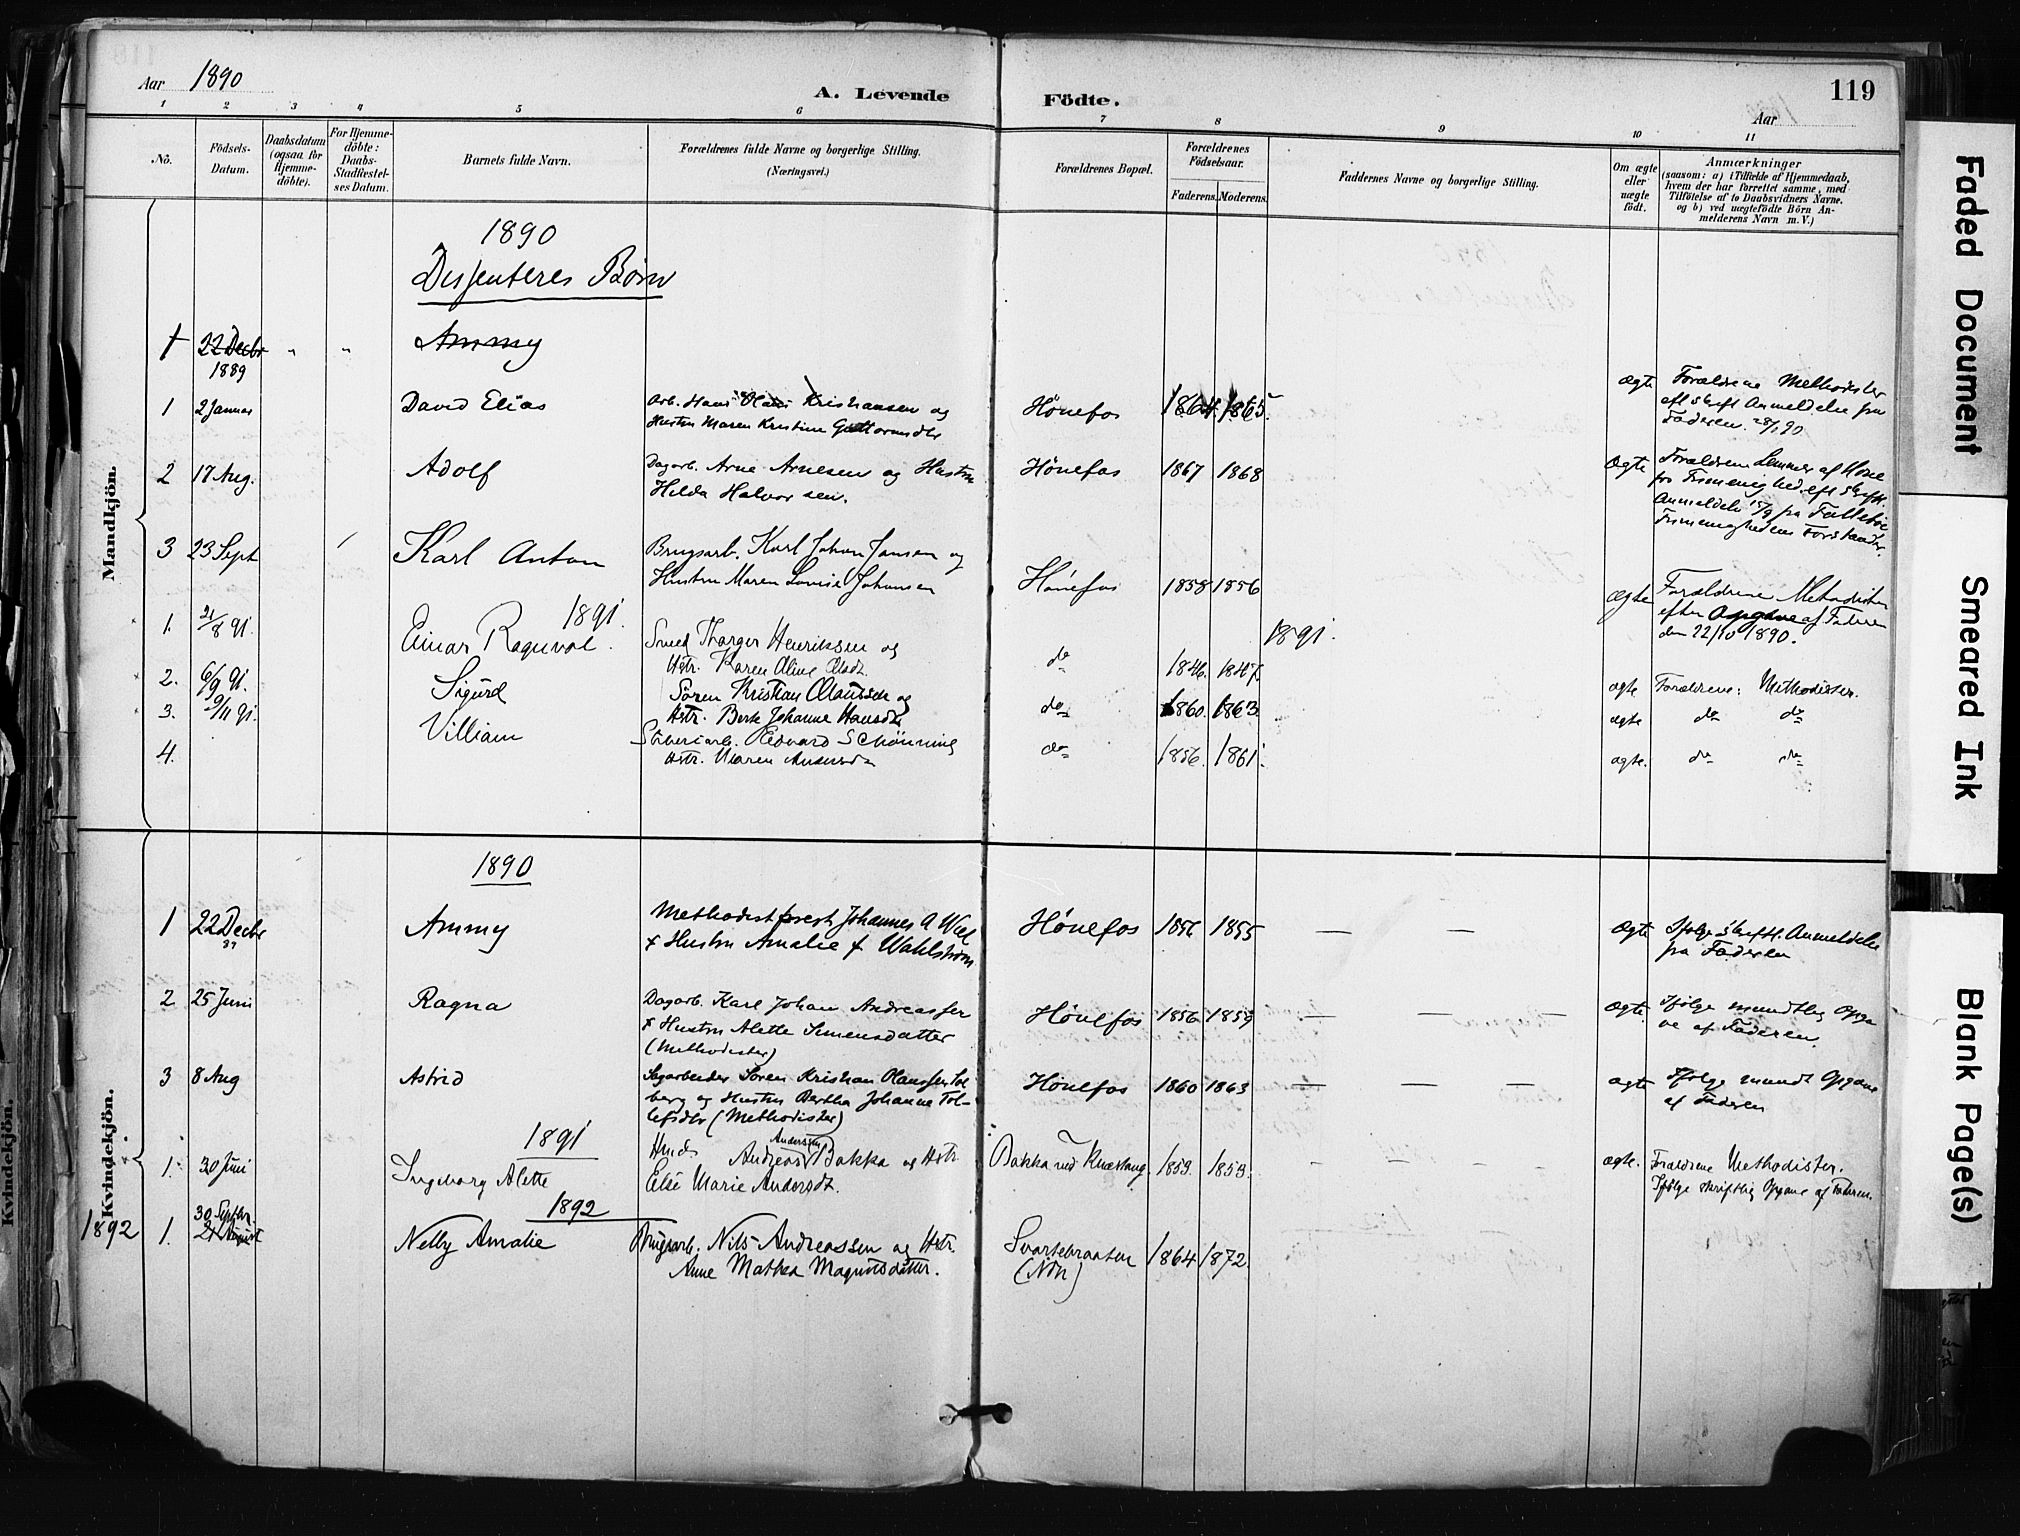 Aar 1890
A. Levende Födte.
Aar
119
1 2 3 4 5 6 7 8 9 10 11
No.
Födsels-Datum.
Daabsdatum (ogsaa for Hjemme-döbte).
For Hjemme-döbte: Daabs-Stadfæstel-ses Datum.
Barnets fulde Navn.
Forældrenes fulde Navne og borgerlige Stilling. (Næringsvei.)
Forældrenes Bopæl.
Forældrenes Födselsaar.
Faderens. Moderens.
Faddernes Navne og borgerlige Stilling.
Om ægte eller uægte födt.
Anmærkninger
(saasom: a) i Tilfælde af Hjemmedaab, hvem der har forrettet samme, med Tilföielse af to Daabsvidners Navne. og b) ved uægtefödte Börn An-melderens Navn m. V.)
Mandkjön.
1890
Dissenteres Børn
1 22 Decbr 1889 " " Ammy
1 2 Januar David Elias Arb. Hans Olaus Kristiansen og
Hustru Maren Kristine Guttormsdtr
Hønefos 1864. 1865. ægte Forældrene Methodister
eft Skrift Anmeldelse fra
Faderen 28/1 90
2 17 Aug. Adolf Dagarb. Arne Arnesen og Hustru
Hilda Halvorsen.
Hønefos 1867 1868 ægte Forældrene Lemmer af Hone
fos Frimenighed, eft Skrftl.
Anmeldelse 15/9 fra
Frimenighedens Forstander.
3 23 Sept Karl Anton Brugsarb. Karl Johan Jansen og
Hustru Maren Lovise Johansen
Hønefos 1858 1856 ægte Forældrene Methodister
efter Opgave af Faderen
den 22/10 1890.
1891. 1891.
1. 21/8 91. Einar Ragnval. Smed Thorger Henriksen og
Hstr. Karen Oline Olsdt.
do 1846. 1847. ægte Forældrene: Methodister.
2. 6/9 91. Sigurd Søren Kristian Olaussen og
Hstr. Berte Johanne Hansdtr
do 1860. 1863. ægte do do
3. 9/11 91. Villiam Edvard Schønning
Hstr. Maren
do 1856. 1861. ægte. do do
4.
Kvindekjön.
1890
1 22 Decbr Ammy Methodistprest Johannes A Wiel
& Hustru Amalie f Wahlstrøm
Hønefos 1856 1855 — — — ægte Ifølge skriftl. Anmeldelse
fra Faderen
2 25 Juni Ragna Dagarb. Karl Johan Andreassen
& Hustru Alette Simensdatter
(Methodister)
Hønefos 1856 1859 — — — ægte Ifølge mundtlig Opga
ve af Faderen.
3 8 Aug Astrid Sagarbeider Søren Kristian Olaussen Sol
berg og Hustru Bertha Johanne Tol-
lefsdtr (Methodister)
Hønefos 1860 1863 — — — ægte Ifølge mundt Opgave
af Faderen
1891
1. 30 Juni Ingeborg Alette Andreas Anderssen Bakka og Hstr.
Else Marie Andersdt.
Bakka ved Knæstang. 1859. 1859. — — — ægte. Forældrene Methodister.
Ifølge skriftlig Opgave af Faderen.
1892
1892 1. 30 Septbr 21 August Nelly Amalie Brugsarb. Nils Andreassen og Hstr.
Anne Mathea Magnusdatter.
Svartebraaten
(Ndr)
1864 1872.
Kvindekjön.
Faded Document
Smeared Ink
Blank Page(s)